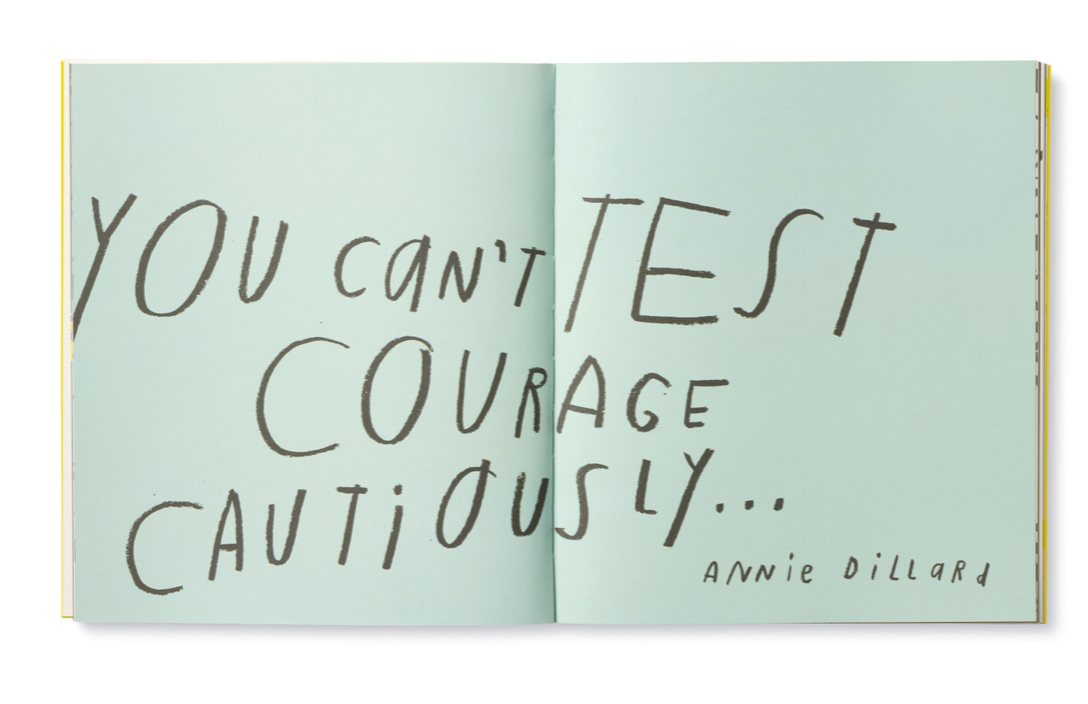 YOU CAN'T TEST
COURAGE
CAUTIOUSLY...
ANNIE DILLARD